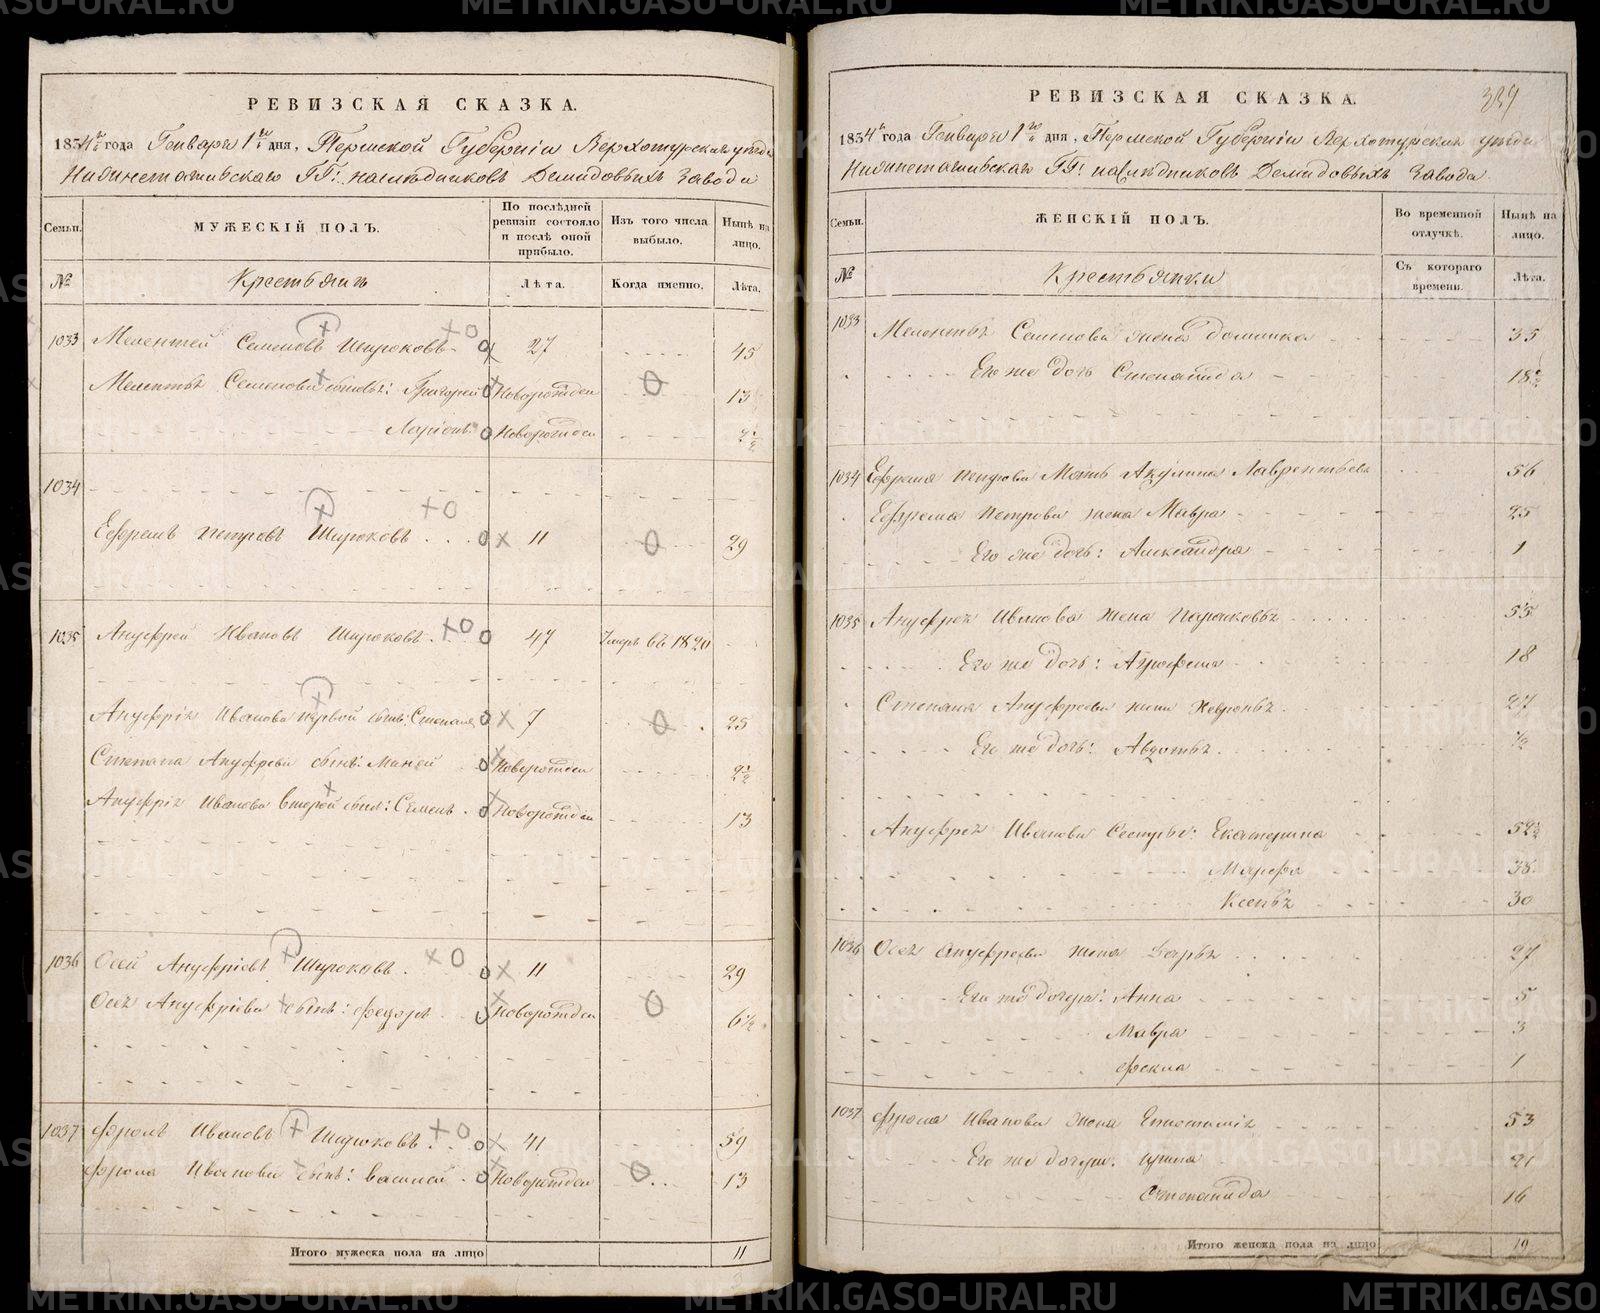 РЕВИЗСКАЯ СКАЗКА.
1834 года Генваря 1 дня, Пермской Губерніи Верхотурскаго уезда
Нижнетагильскаго ГГ. наследниковъ Демидовыхъ завода
Семьи.
МУЖЕСКІЙ ПОЛЪ.
По послѣдней ревизіи состояло и послѣ оной прибыло.
Изъ того числа выбыло.
Нынѣ на лицо.
№
Крестьянъ
Лѣта.
Когда именно.
Лѣта.
1033 Мелентей Семеновъ Широковъ 27 45
Мелентья Семенова сыновья: Григорей Новорожден 13
Ларіонъ Новорожден 2½
1034
Ефремъ Петровъ Широковъ 11 29
1035 Ануфрей Ивановъ Широковъ 47 Умеръ въ 1820
Ануфрія Иванова первой сынъ: Степанъ 7 25
Степана Ануфрева сынъ: Новорожден 2½
Ануфрія Иванова второй сынъ: Семенъ Новорожден 13
1036 Осей Ануфріевъ Широковъ 11 29
Осея Ануфріева сынъ: Федоръ Новорожден 6½
1037 Фролъ Ивановъ Широковъ 41 59
Фрола Иванова сынъ: Василей Новорожден 13
Итого мужеска пола на лицо 11
РЕВИЗСКАЯ СКАЗКА. 389
1834 года Генваря 1 дня, Пермской Губерніи Верхотурскаго уезда
Нижнетагильскаго ГГ. наследниковъ Демидовыхъ завода
Семьи.
ЖЕНСКІЙ ПОЛЪ.
Во временной отлучкѣ.
Нынѣ на лицо.
№
Крестьянки
Съ котораго времени.
Лѣта.
1033 Мелентья Семенова жена Домника 35
Его же дочь Степанида 18½
1034 Ефрема Петрова Мать Акулина Лаврентьева 56
Ефрема Петрова жена Мавра 25
Его же дочь: Александра 1
1035 Ануфрея Иванова жена 55
Его же дочь: Агрофена 18
Степана Ануфреева жена 27
Его же дочь: Авдотья ½
Ануфрея Иванова Сестры: Екатерина 52½
Марфа 38
Ксенья 30
1036 Осея Ануфреева жена Дарья 27
Его же дочери: Анна 5
Мавра 3
Фекла 1
1037 Фрола Иванова жена 53
Его же дочери: Ирина 21
Степанида 16
Итого женска пола на лицо 19
METRIKI.GASO-URAL.RU